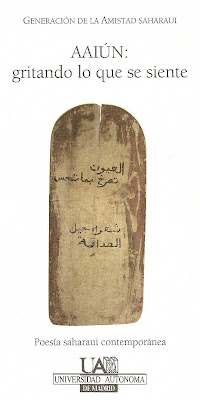 GENERACIÓN DE LA AMISTAD SAHARAUI
AAIÚN:
gritando lo que se siente
العيون
تصرخ بما تحس
شعراء جيل
الصداقة
Poesía saharaui contemporánea
UA
UNIVERSIDAD AUTONOMA
DE MADRID